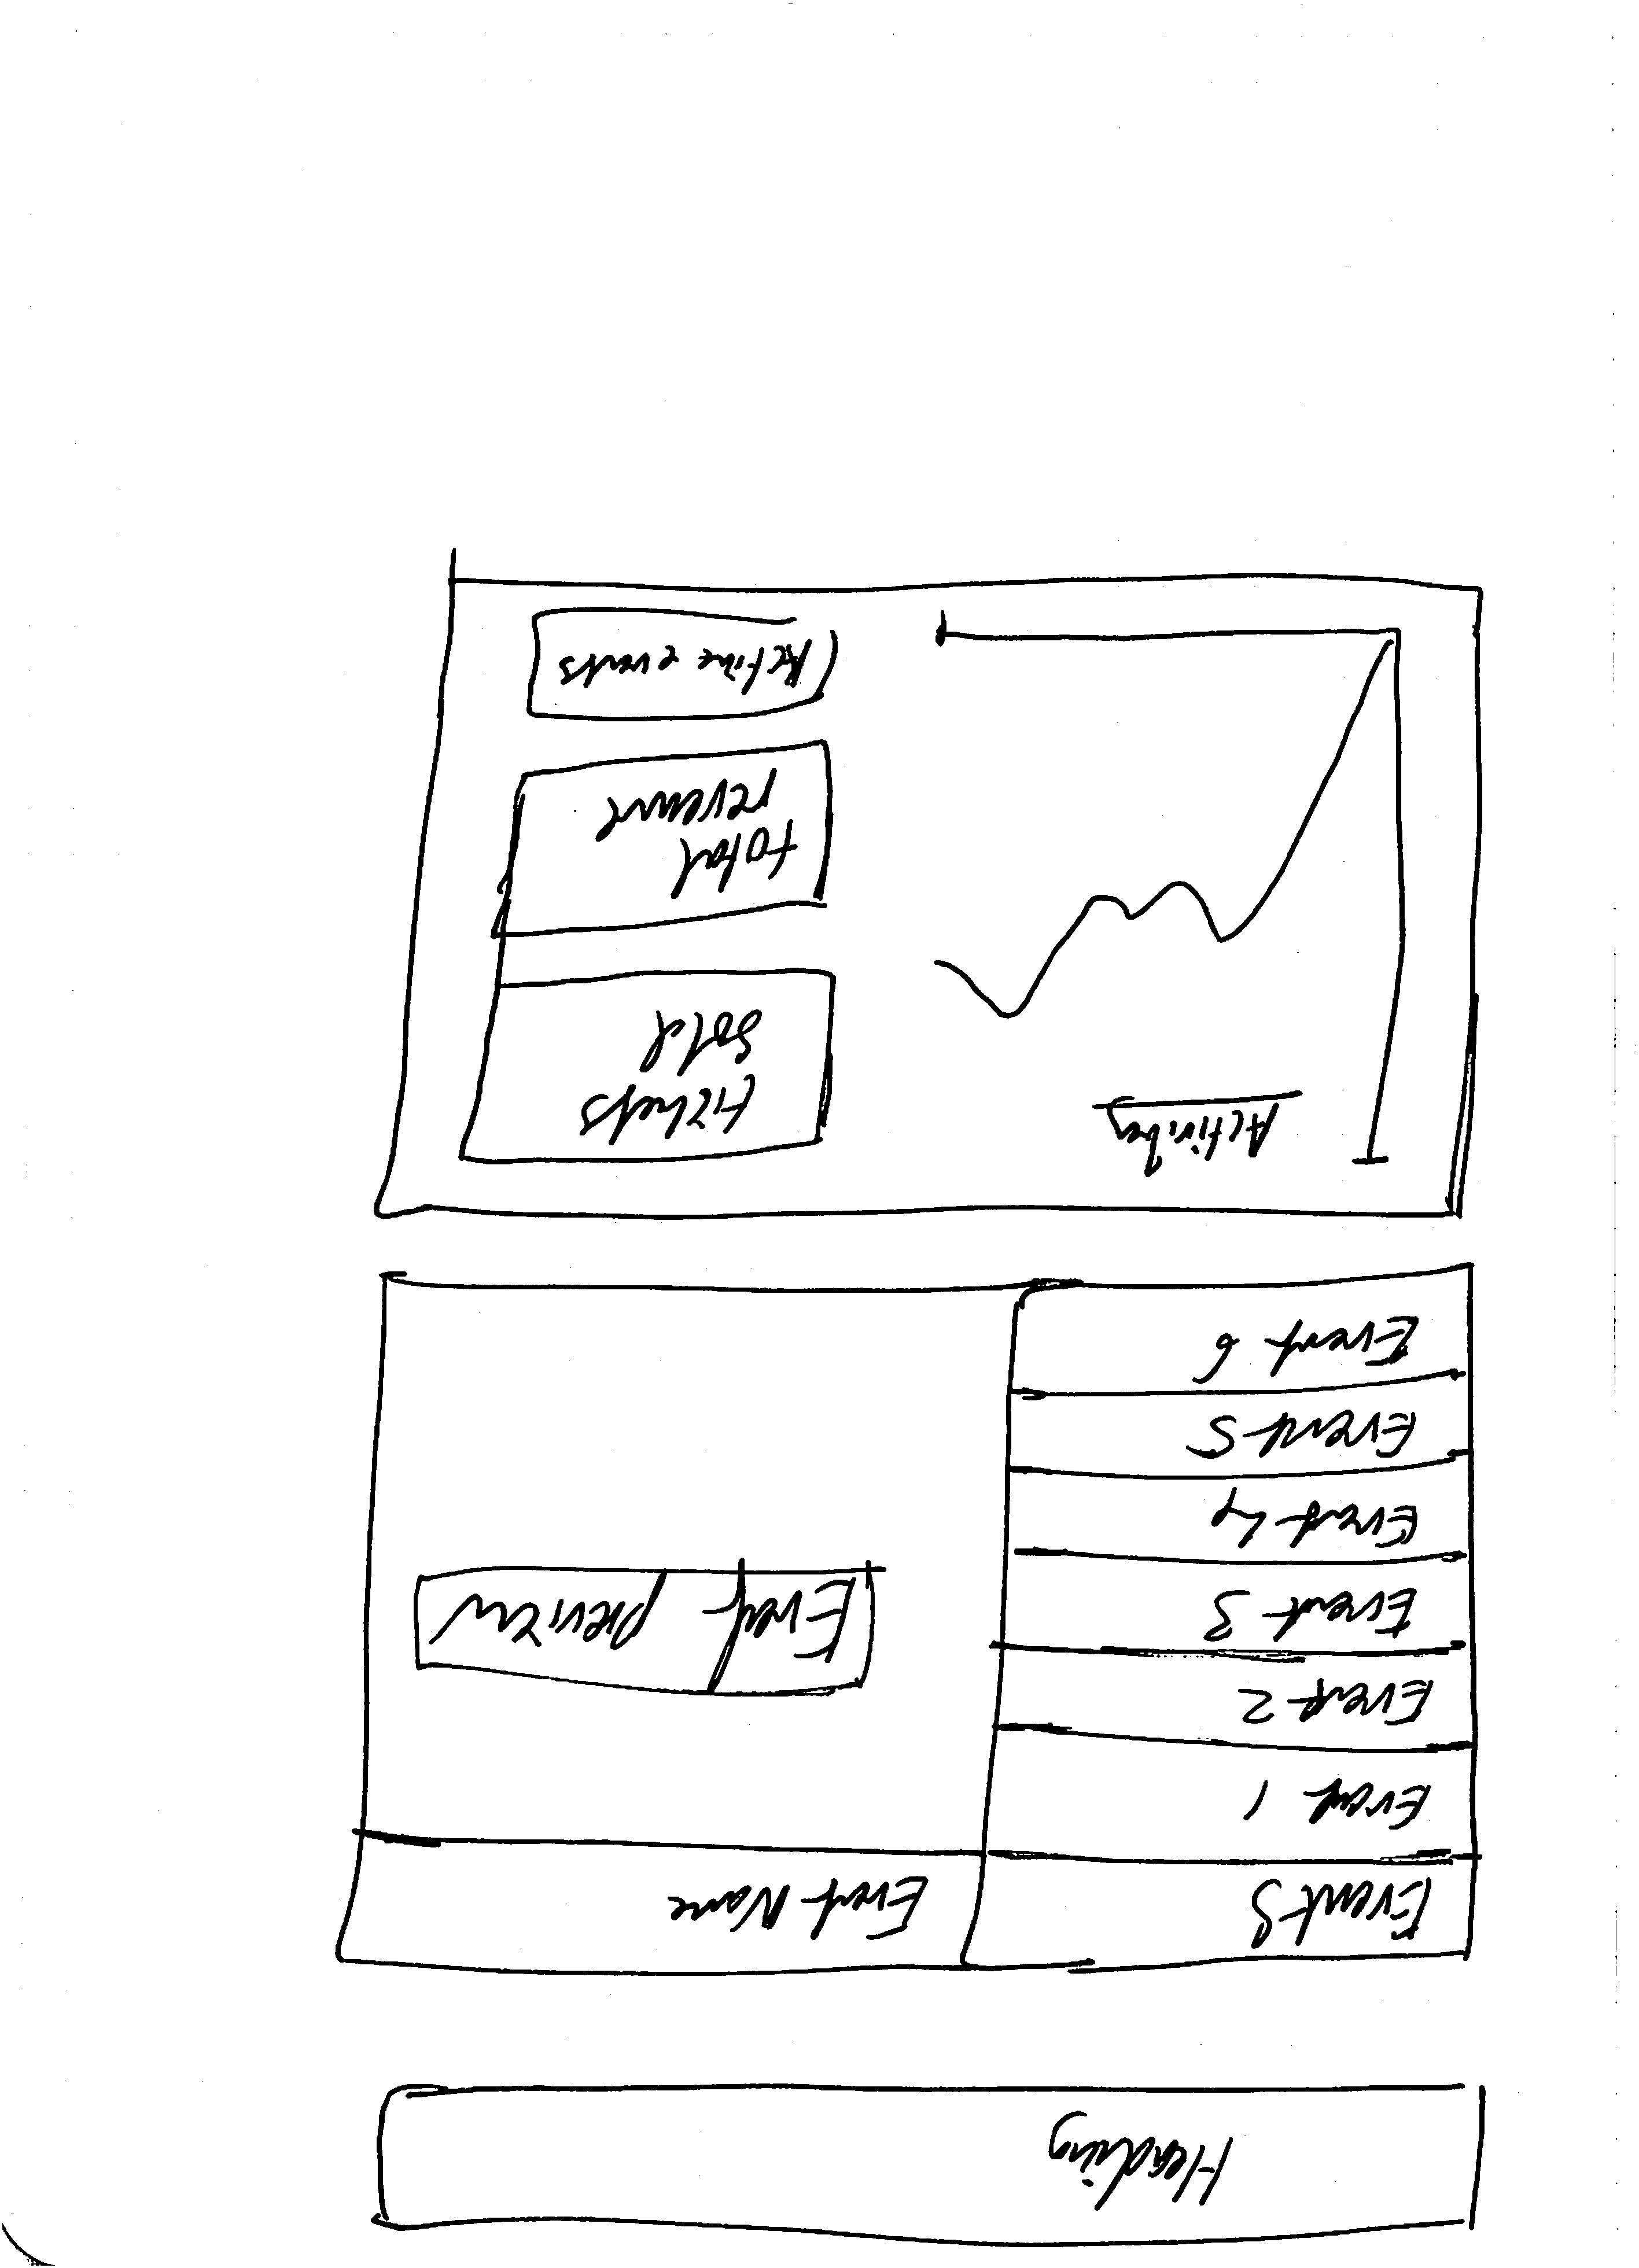 Heading
Events
Event Name
Event 1
Event 2
Event 3
Event 4
Event 5
Event 6
Event preview
Activity
tickets
sold
total
revenue
Active events